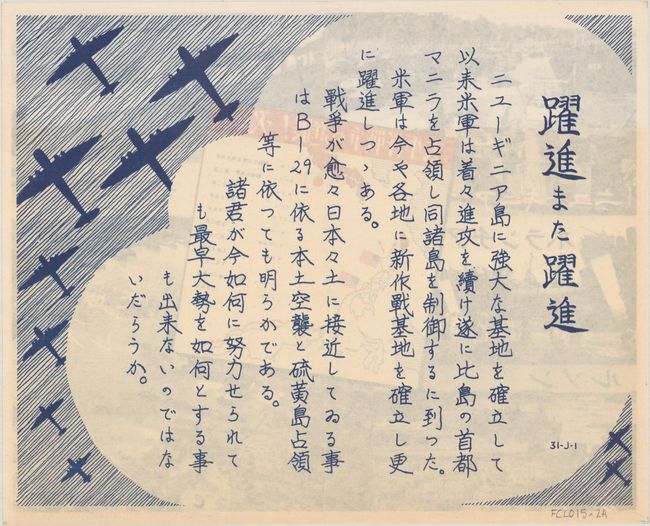 躍進また躍進
ニューギニア島に強大な基地を確立して
以来米軍は着々進攻を續け遂に比島の首都
マニラを占領し同諸島を制御するに到つた。
米軍は今や各地に新作戰基地を確立し更
に躍進しつゝある。
戰爭が愈々日本々土に接近してゐる事
はB-29に依る本土空襲と硫黄島占領
等に依つても明らかである。
諸君が今如何に努力せられて
も最早大勢を如何とする事
も出来ないのではな
いだらうか。
31-J-1
FCL015-2A